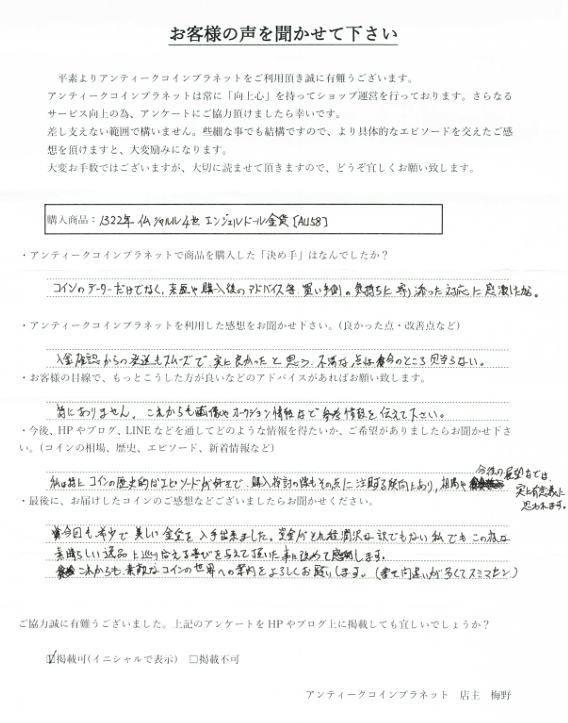 お客様の声を聞かせて下さい
平素よりアンティークコインプラネットをご利用頂き誠に有難うございます。
アンティークコインプラネットは常に「向上心」を持ってショップ運営を行っております。さらなる
サービス向上の為、アンケートにご協力頂けましたら幸いです。
差し支えない範囲で構いません。些細な事でも結構ですので、より具体的なエピソードを交えたご感
想を頂けますと、大変励みになります。
大変お手数ではございますが、大切に読ませて頂きますので、どうぞ宜しくお願い致します。
購入商品：1322年 仏 シャルル4世 エンジェルドール金貨 [AU58]
・アンティークコインプラネットで商品を購入した「決め手」はなんでしたか？
コインのデーターだけでなく、来歴や購入後のアドバイス等、買い手側の気持ちに寄り添った対応に感激した為。
・アンティークコインプラネットを利用した感想をお聞かせ下さい。（良かった点・改善点など）
入金確認からの発送もスムーズで、実に良かったと思う。不満な点は今のところ見当らない。
・お客様の目線で、もっとこうした方が良いなどのアドバイスがあればお願い致します。
特にありません。これからも画像やオークション情報などで情報を伝えて下さい。
・今後、HPやブログ、LINEなどを通してどのような情報を得たいか、ご希望がありましたらお聞かせ下さ
い。（コインの相場、歴史、エピソード、新着情報など）
私は特にコインの歴史的なエピソードが好きで、購入検討の際もその点に注目する傾向にあり、相場や
今後の展望などは、
実に有意義に
思われます。
・最後に、お届けしたコインのご感想などございましたらお聞かせください。
今回も希少で美しい金貨を入手出来ました。資金がそれ程潤沢な訳でもない私でもこの様な
素晴しい逸品に巡り会える喜びを与えて頂いた事に改めて感謝します。
これからも、素敵なコインの世界への案内をよろしくお願いします。（書て間違いが多くてスミマセン）
ご協力誠に有難うございました。上記のアンケートをHPやブログ上に掲載しても宜しいでしょうか？
☑掲載可(イニシャルで表示) □掲載不可
アンティークコインプラネット 店主 梅野